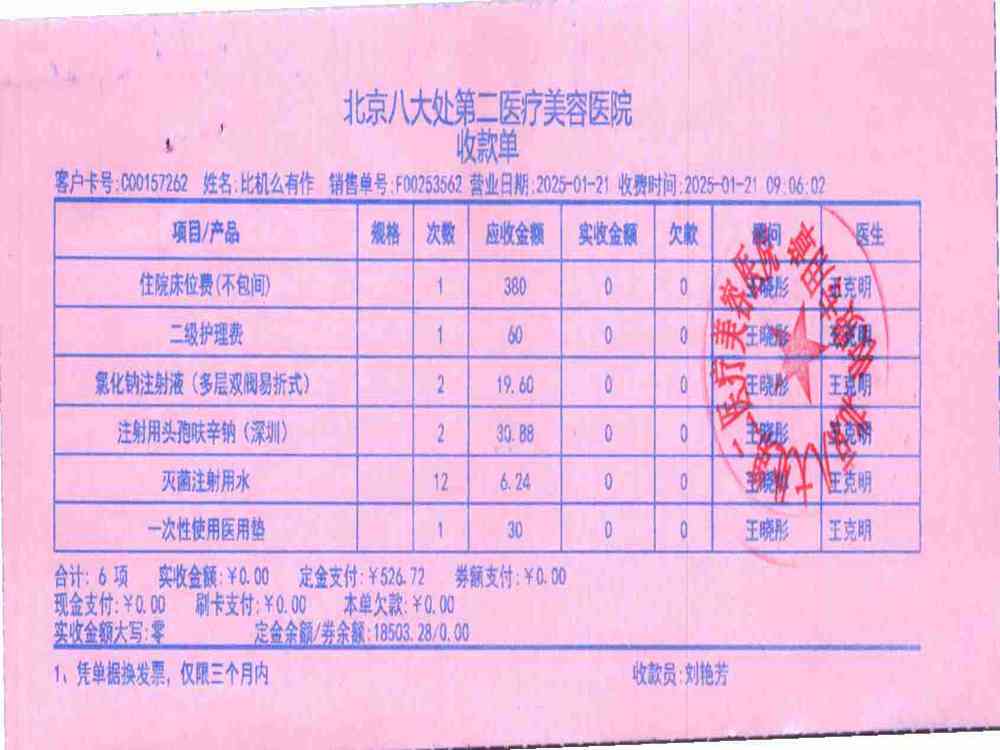 北京八大处第二医疗美容医院
收款单
客户卡号:C00157262 姓名:比机么有作 销售单号:F00253562 营业日期:2025-01-21 收费时间:2025-01-21 09:06:02
项目/产品 规格 次数 应收金额 实收金额 欠款 顾问 医生
住院床位费(不包间) 1 380 0 0 王晓彤 王克明
二级护理费 1 60 0 0 王晓彤 王克明
氯化钠注射液（多层双阀易折式） 2 19.60 0 0 王晓彤 王克明
注射用头孢呋辛钠（深圳） 2 30.88 0 0 王晓彤 王克明
灭菌注射用水 12 6.24 0 0 王晓彤 王克明
一次性使用医用垫 1 30 0 0 王晓彤 王克明
合计: 6 项 实收金额:¥0.00 定金支付:¥526.72 券额支付:¥0.00
现金支付:¥0.00 刷卡支付:¥0.00 本单欠款:¥0.00
实收金额大写:零 定金余额/券余额:18503.28/0.00
1、凭单据换发票，仅限三个月内 收款员:刘艳芳